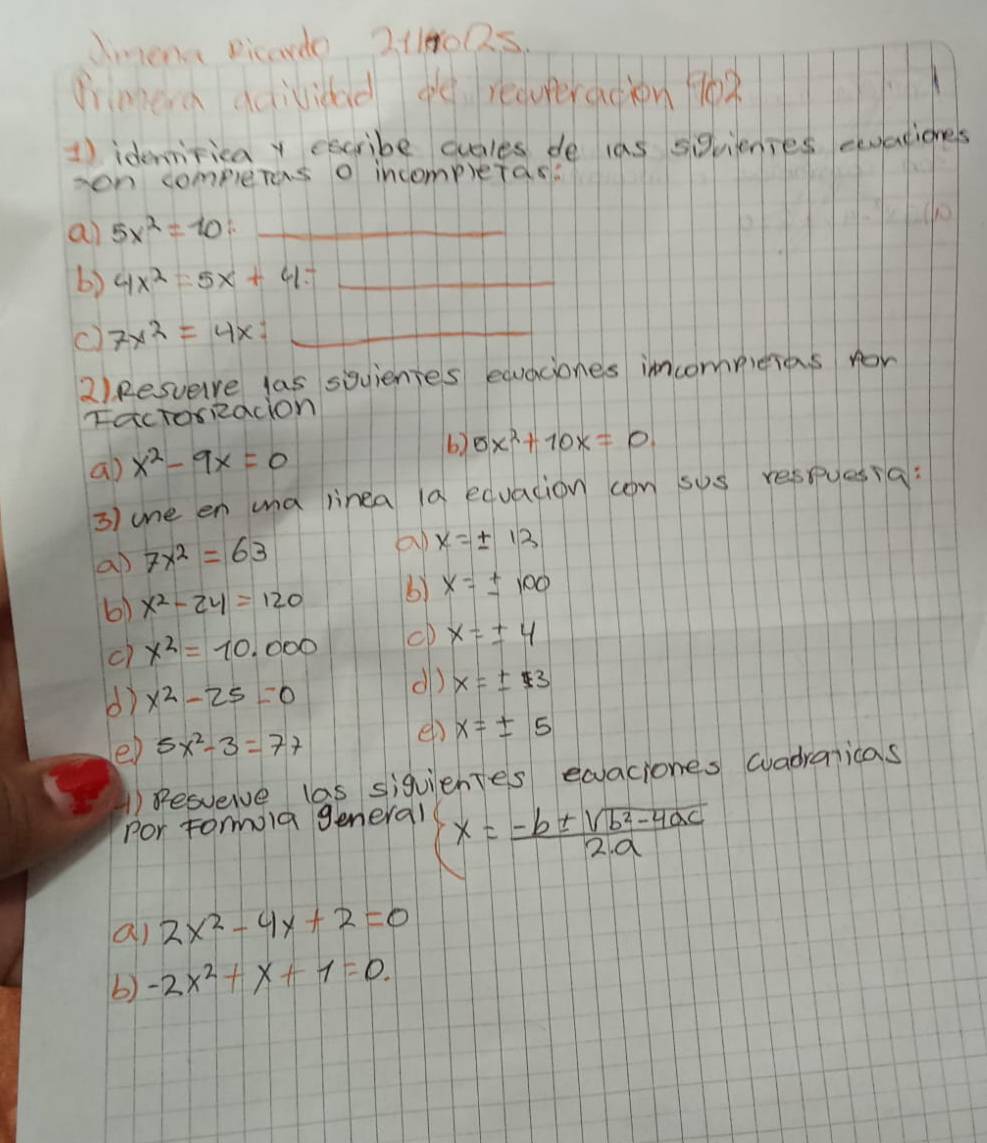 Jimena Ricardo
Primera actividad de recuperacion 902
1) idenmifica y escribe cuales de las siguientes ecuaciones
son completas o incompletas:
a) 5x² = 10:
b) 4x² = 5x + 4:
c) 7x² = 4x:
2) Resuelve las siguientes ecuaciones imcompletas por
Factorizacion
a) x² - 9x = 0
b) 5x² + 10x = 0.
3) une en una linea la ecuacion con sus respuesta:
a) 7x² = 63
a) x = ± 12
b) x² - 24 = 120
b) x = ± 100
c) x² = 10.000
c) x = ± 4
d) x² - 25 = 0
d) x = ± 3
e) 5x² - 3 = 77
e) x = ± 5
4) Resuelve las siguientes ecuaciones cuadraticas
por Formula general { x = -b ± √b² - 4ac / 2.a
a) 2x² - 4x + 2 = 0
b) -2x² + x + 1 = 0.